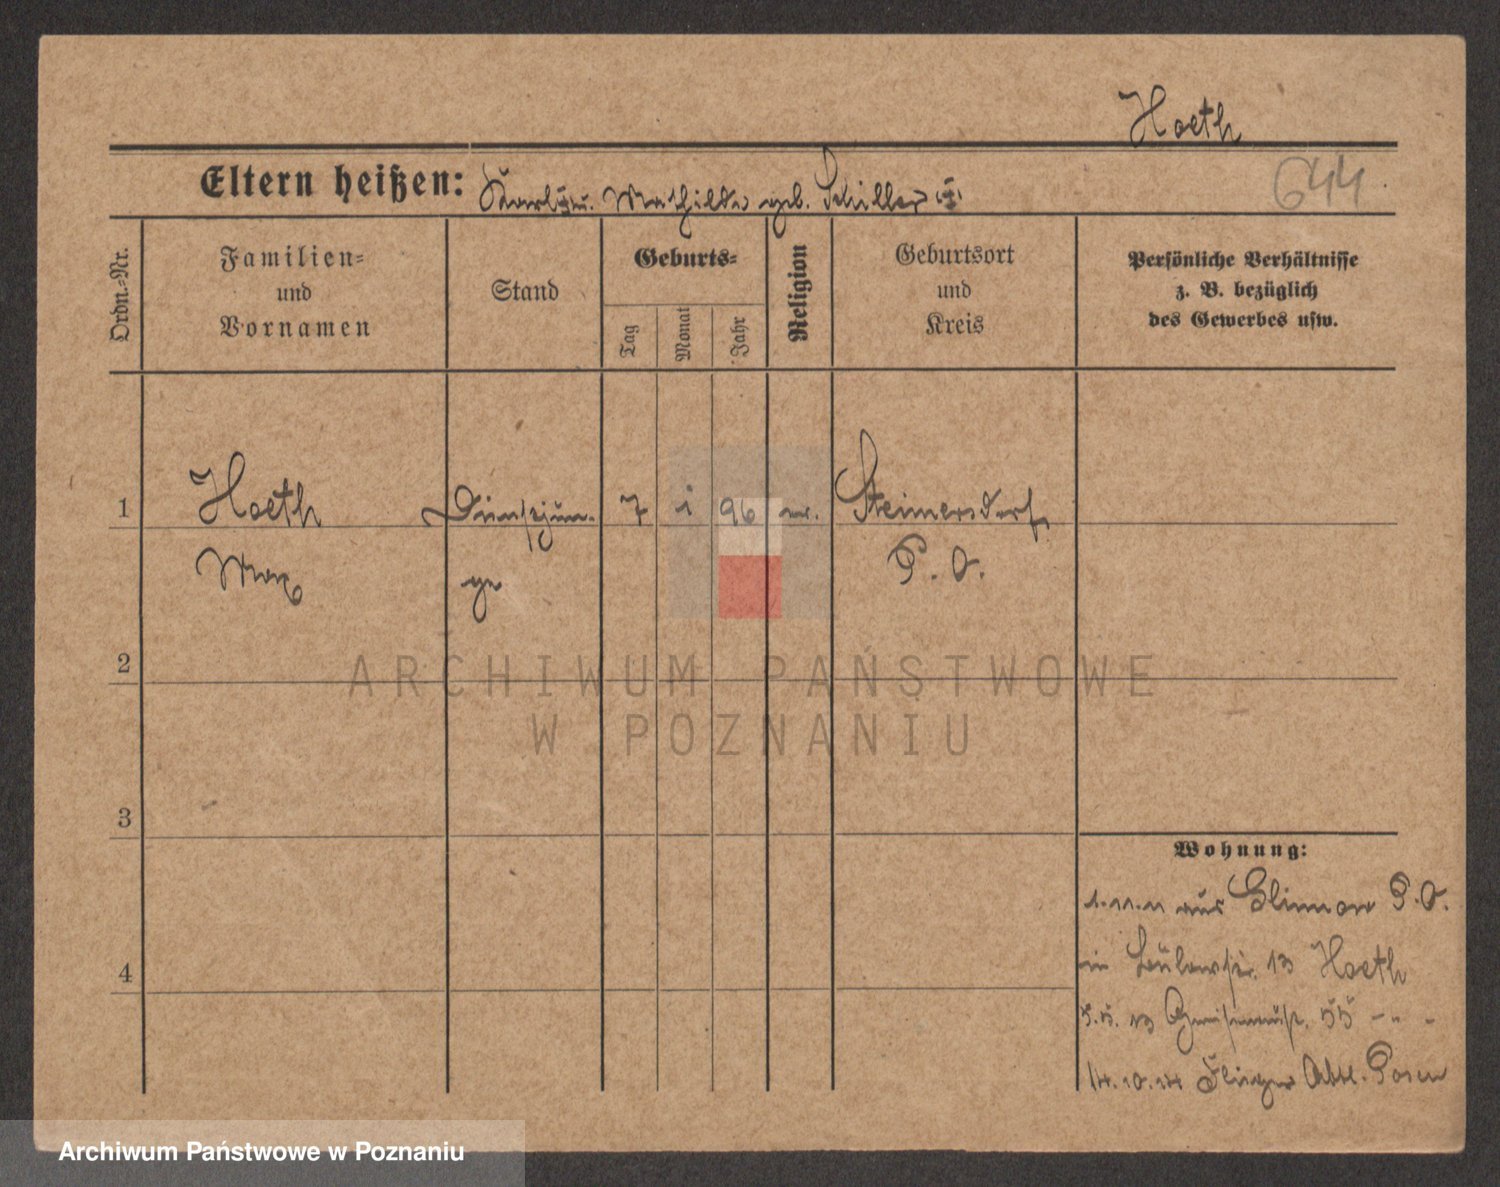 Hoeth
Eltern heißen: Karl u. Mathilde geb. Schiller
644
Ordn.-Nr.
Familien-
und
Vornamen
Stand
Geburts-
Tag
Monat
Jahr
Religion
Geburtsort
und
Kreis
Persönliche Verhältnisse
z. B. bezüglich
des Gewerbes usw.
1 Hoeth Dienstjun- 7 1 96 ev. Steimersdorf
Max ge P. O.
2
ARCHIWUM PAŃSTWOWE
W POZNANIU
3
Wohnung:
1.11.11 aus Glinnow P. O.
in Bülowstr. 13 Hoeth
4
5.5.13 Gneisenaustr. 55 - " -
14.10.14 Flieger Abtl. Posen
Archiwum Państwowe w Poznaniu